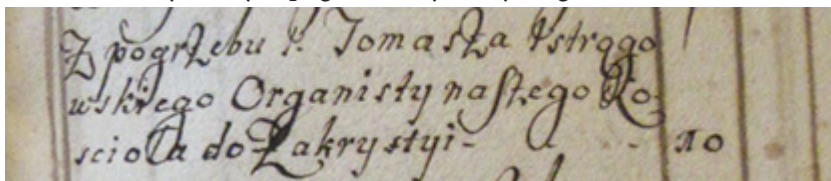 Z pogrzebu s. Tomasza Ostrogo
wskiego Organisty naszego Ko-
scioła do Zakrystyi - - 10